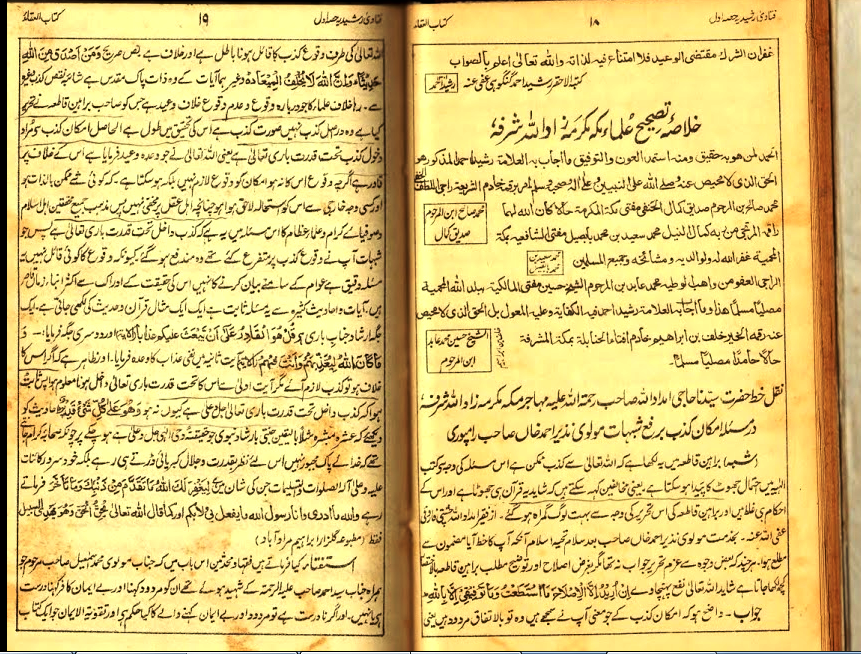 فتاوی رشیدیہ حصہ اول
۱۸
کتاب العقائد
غفران الشرك مقتضی الوعید فلا امتناع فیہ لذاتہ واللہ تعالیٰ اعلم بالصواب
کتبہ الاحقر رشید احمد گنگوہی عفی عنہ
خلاصۂ تصحیح علماء مکہ مکرمہ زادہ اللہ شرفہٗ
الحمد لمن ھو بہ حقیق ومنہ استمد العون والتوفیق ما اجاب بہ العلامۃ رشید احمد المذکور ھو
الحق الذی لا محیص عنہ وصلی اللہ علی النبیین وعلی آلہ وصحبہ وسلم امر برقمہ خادم الشریعۃ راجی اللطف
محمد صالح بن المرحوم صدیق کمال الحنفی مفتی مکۃ المکرمۃ حالا کان اللہ لھما
محمد صالح ابن المرحوم
صدیق کمال
راقمہ المرتجی من ربہ کمال النیل محمد سعید بن محمد بابصیل مفتی الشافعیہ بمکۃ
المحمیۃ غفر اللہ لہ ولوالدیہ ومشائخہ وجمیع المسلمین
الراجی العفو من واھب العطیہ محمد عابد بن المرحوم الشیخ حسین مفتی المالکیۃ ببلد اللہ المحمیۃ
مصلیا مسلما ھذا وما اجاب العلامۃ رشید احمد فیہ الکفایۃ وعلیہ المعول بل الحق الذی لا محیص
عنہ رقمہ الحقیر خلف بن ابراھیم خادم افتاء الحنابلۃ بمکۃ المشرفۃ
حالا حامدا مصلیا مسلما۔
نقل خط حضرت سیدنا حاجی امداد اللہ صاحب رحمۃ اللہ علیہ مہاجر مکہ مکرمہ زاد اللہ شرفہٗ
در مسئلہ امکان کذب بر رفع شبہات مولوی نذیر احمد خاں صاحب رامپوری
(شبہ) براہین قاطعہ میں یہ لکھا ہے کہ اللہ تعالیٰ سے کذب ممکن ہے اس مسئلہ کی وجہ سے کتب
الٰہیہ میں احتمال جھوٹ کا پیدا ہو سکتا ہے یعنی مخالفین کہہ سکتے ہیں کہ شاید یہ قرآن ہی جھوٹا ہے اور اس کے
احکام ہی غلط ہیں اور براہین قاطعہ کی اس تحریر کی وجہ سے بہت لوگ گمراہ ہو گئے۔ از فقیر امداد اللہ چشتی فاروقی
عفی اللہ عنہ۔ بخدمت مولوی نذیر احمد خاں صاحب بعد سلام تحیہ اسلام آنکہ آپ کا خط آیا مضمون سے
مطلع ہوا۔ ہر چند کہ بعض وجوہ سے عزم تحریر جواب نہ تھا مگر بغرض اصلاح اور توضیح مطلب براہین قاطعہ
کچھ لکھا جاتا ہے شاید اللہ تعالیٰ نفع پہنچاوے ان ارید الا الاصلاح ما استطعت وما توفیقی الا باللہ
جواب۔ واضح ہو کہ امکان کذب کے جو معنی آپ نے سمجھے ہیں وہ تو بالاتفاق مردود ہیں یعنی
فتاوی رشیدیہ حصہ اول
۱۹
کتاب العقائد
اللہ تعالیٰ کی طرف وقوع کذب کا قائل ہونا باطل ہے اور خلاف ہے نص صریح ومن اصدق من اللہ
حدیثا وان اللہ لا یخلف المیعاد وغیرہما آیات کے وہ ذات پاک مقدس ہے شائبہ نقص کذب وغیرہ
سے۔ رہا خلاف علماء کا جو دربارہ وقوع و عدم وقوع خلاف وعید ہے جس کو صاحب براہین قاطعہ نے تحریر
کیا ہے وہ دراصل کذب نہیں صورت کذب ہے اس کی تحقیق میں طول ہے الحاصل امکان کذب سے مراد
دخول کذب تحت قدرت باری تعالیٰ ہے یعنی اللہ تعالیٰ نے جو وعدہ وعید فرمایا ہے اس کے خلاف پر
قادر ہے اگرچہ وقوع اس کا نہ ہو امکان کو وقوع لازم نہیں بلکہ ہو سکتا ہے کہ کوئی شے ممکن بالذات ہو
اور کسی وجہ خارجی سے اس کو استحالہ لاحق ہوا ہو چنانچہ اہل عقل پر مخفی نہیں پس مذہب جمیع محققین اہل اسلام
وصوفیائے کرام و علماء عظام کا اس مسئلہ میں یہ ہے کہ کذب داخل تحت قدرت باری تعالیٰ ہے پس جو
شبہات آپ نے وقوع کذب پر متفرع کئے تھے وہ مندفع ہو گئے کیونکہ وقوع کا کوئی قائل نہیں یہ
مسئلہ دقیق ہے عوام کے سامنے بیان کرنے کا نہیں اس کی حقیقت کے ادراک سے اکثر ابنائے زماں قاصر
ہیں۔ آیات و احادیث کثیرہ سے یہ مسئلہ ثابت ہے ایک ایک مثال قرآن و حدیث کی لکھی جاتی ہے۔ ایک
جگہ ارشاد جناب باری ہے قل ھو القادر علی ان یبعث علیکم عذابا الآیہ اور دوسری جگہ فرمایا:۔
ما کان اللہ لیعذبہم وانت فیہم الآیہ آیت ثانیہ میں نفی عذاب کا وعدہ فرمایا۔ اور ظاہر ہے کہ اگر اس کا
خلاف ہو تو کذب لازم آئے مگر آیت اولیٰ سے اس کا تحت قدرت باری تعالیٰ داخل ہونا معلوم ہوا پس ثابت
ہوا کہ کذب داخل تحت قدرت باری تعالیٰ جل و علیٰ ہے کیوں نہ ہو وھو علی کل شیء قدیر احادیث کو
دیکھئے کہ عشرہ مبشرہ مثلاً بالیقین جنتی بارشاد نبوی جو حقیقۃ وحی الٰہی جل و علیٰ ہے ہو چکے پر چونکہ صحابہ کرام جانتے
تھے کہ خدائے پاک مجبور نہیں اس لئے نظر بقدرت و جلال کبریائی ڈرتے ہی رہے بلکہ خود سرور کائنات
علیہ وعلی آلہ الصلوات والتسلیمات جن کی شان میں لیغفر لک اللہ ما تقدم من ذنبک وما تاخر فرماتے
رہے واللہ ما ادری وانا رسول اللہ ما یفعل بی ولا بکم اور کما قال اللہ تعالیٰ یحق الحق وھو یھدی السبیل
فقط (مطبوعہ گلزار ابراہیم مراد آباد)
استفتاء کیا فرماتے ہیں فقہاء و محدثین اس باب میں کہ جناب مولوی محمد اسمٰعیل صاحب مرحوم جو
ہمراہ جناب سید احمد صاحب علیہ الرحمۃ کے شہید ہوئے تھے ان کو مردود کہنا اور بے ایمان کا فر کہنا درست
ہے یا نہیں۔ اور اگر نا درست ہے تو مردود اور بے ایمان کہنے والے کا کیا حکم ہے اور تقویۃ الایمان جو ایک کتاب